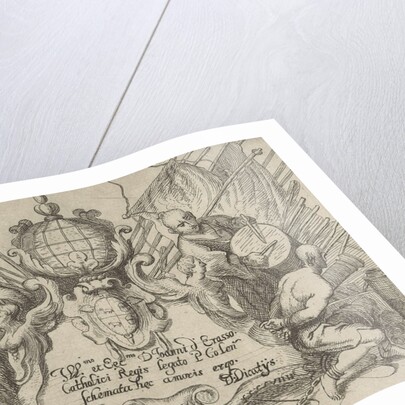 Ill.mo et Ecc.mo D. Joanni d. Erasso.
Catholici Regis legato P. Colen
schemata hęc amoris ergo.
Dicat